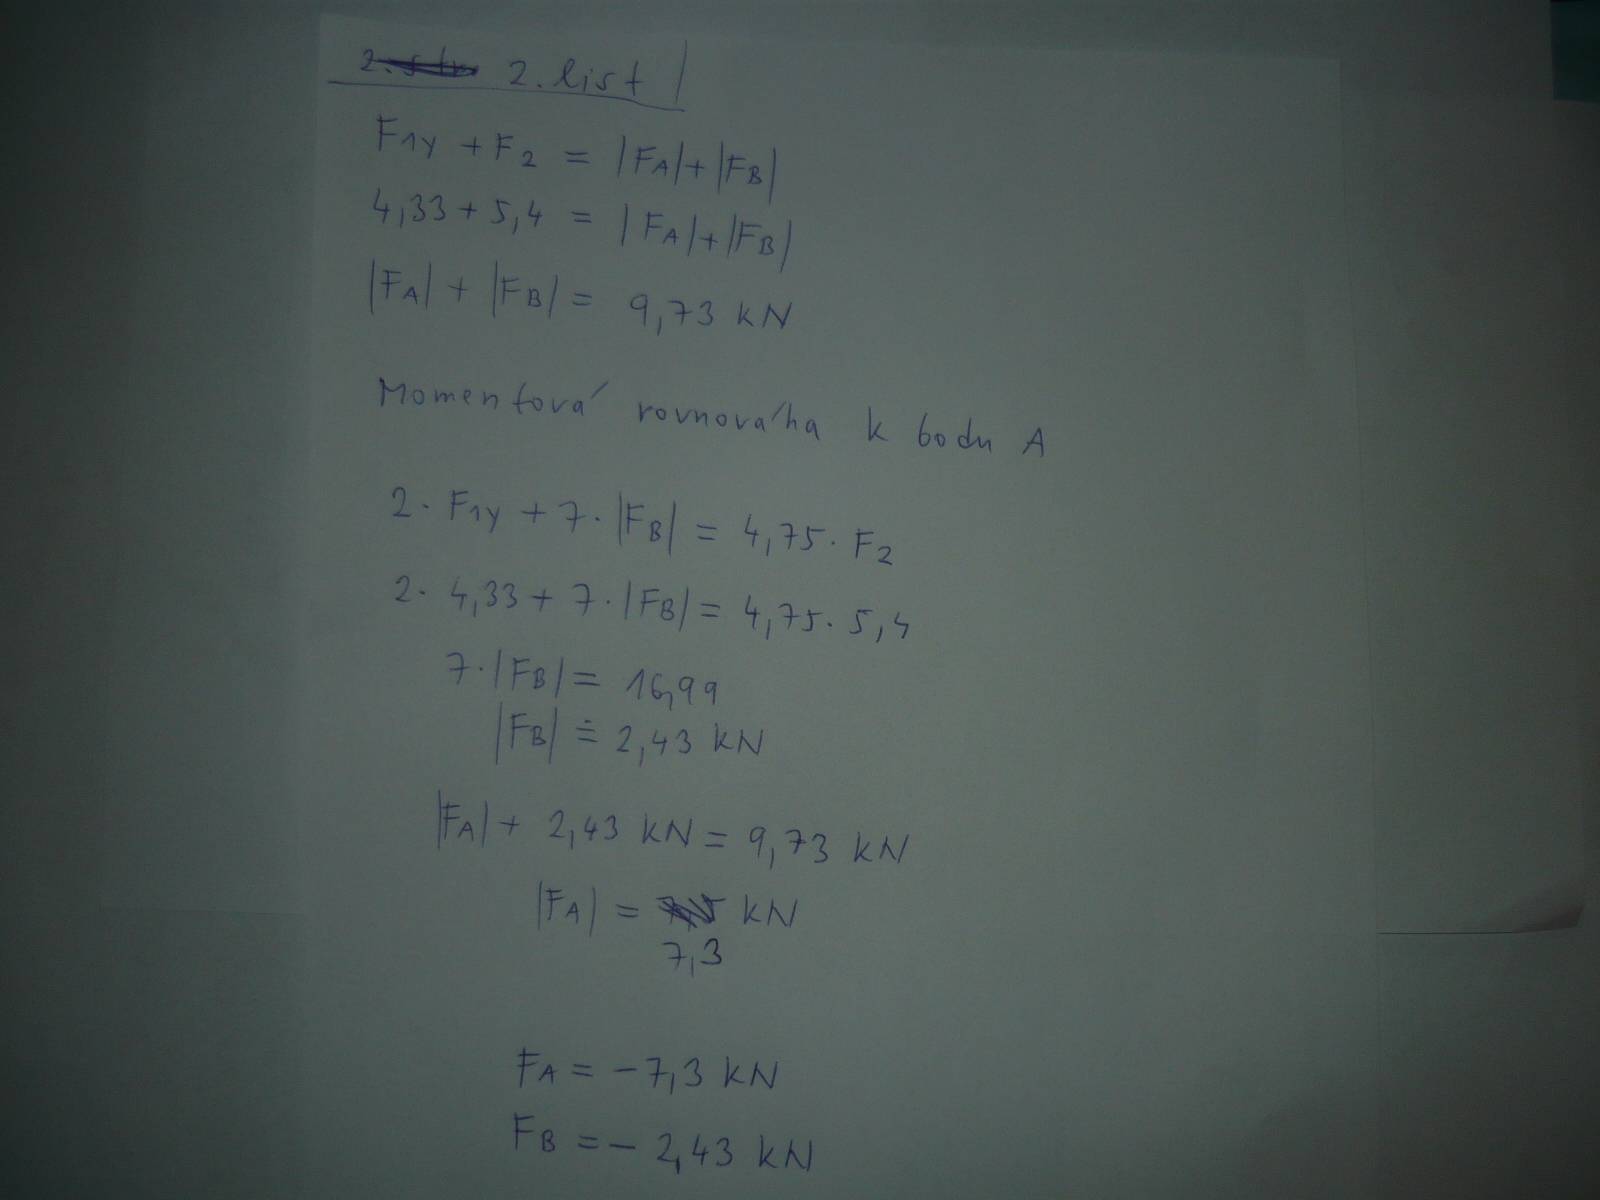 2. list
F1y + F2 = |FA| + |FB|
4,33 + 5,4 = |FA| + |FB|
|FA| + |FB| = 9,73 kN
Momentová rovnováha k bodu A
2 · F1y + 7 · |FB| = 4,75 · F2
2 · 4,33 + 7 · |FB| = 4,75 · 5,4
7 · |FB| = 16,99
|FB| ≐ 2,43 kN
|FA| + 2,43 kN = 9,73 kN
|FA| = kN
7,3
FA = -7,3 kN
FB = - 2,43 kN